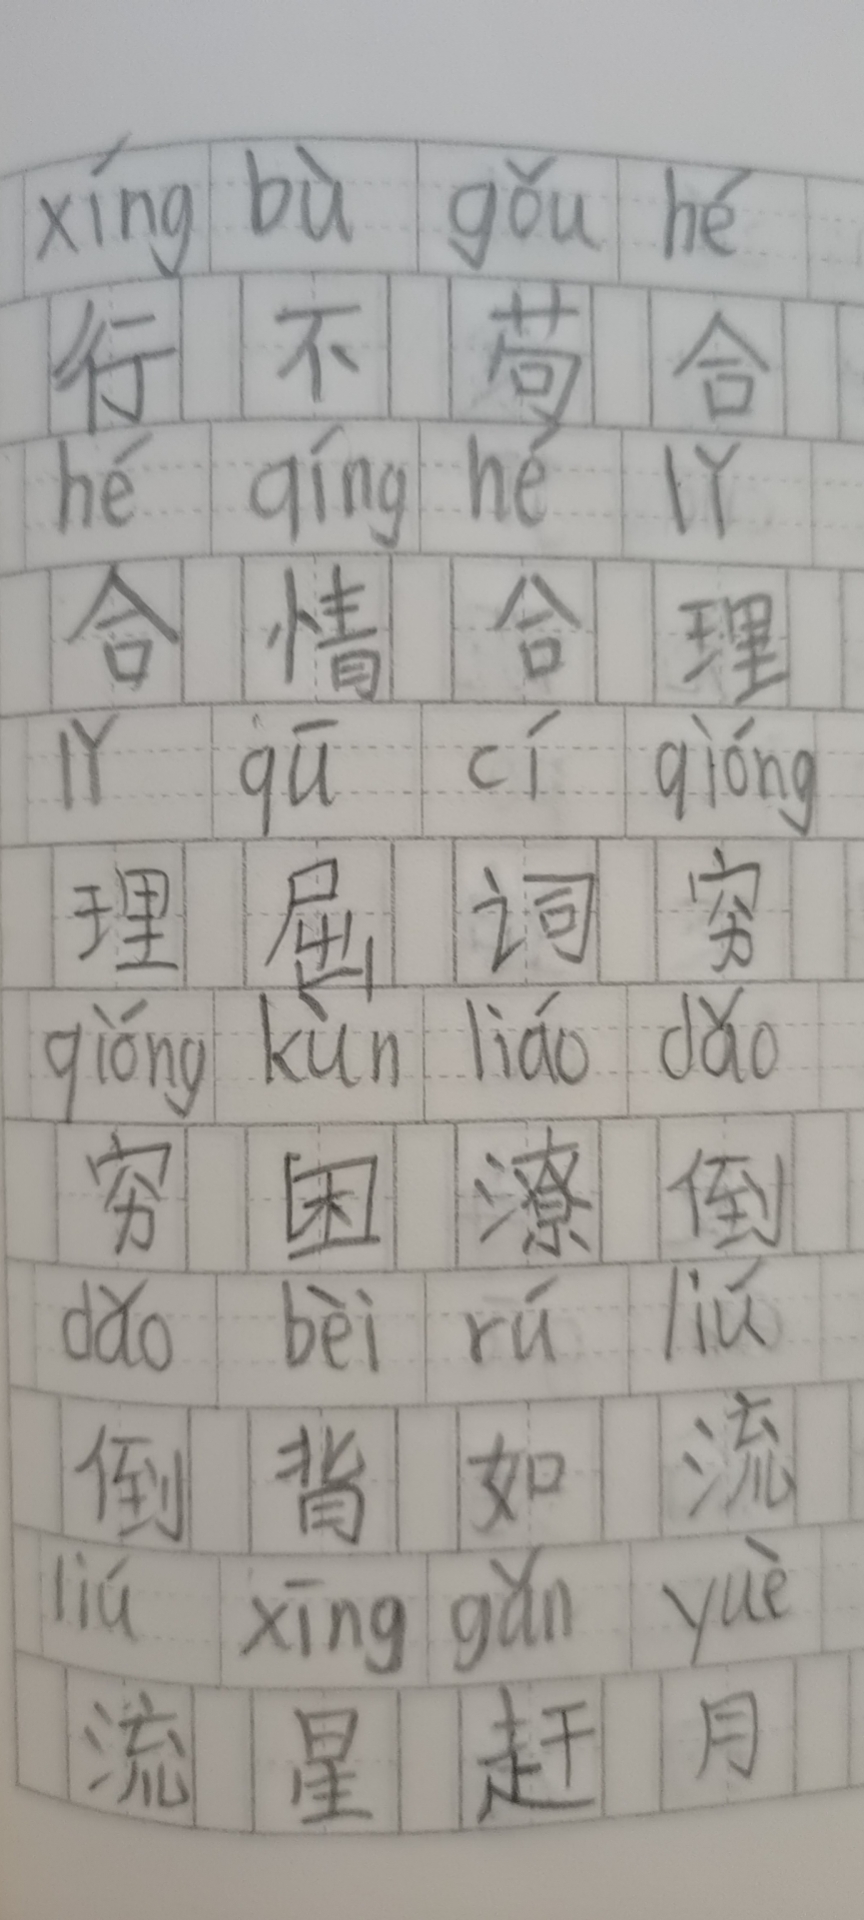 xíng bù gǒu hé
行不苟合
hé qíng hé lǐ
合情合理
lǐ qū cí qióng
理屈词穷
qióng kùn liáo dǎo
穷困潦倒
dǎo bèi rú liú
倒背如流
liú xīng gǎn yuè
流星赶月